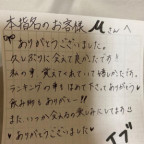 本指名のお客様 Mさんへ
ありがとうございました。
久しぶりに会えて良かったです!
私の事、覚えててくれていて嬉しかったです。
ランキングの事もほめて下さってありがとう♡
飲み物もありがとー!!
またいつか会える日を楽しみにしてます
♡ありがとうございました♥
イブ